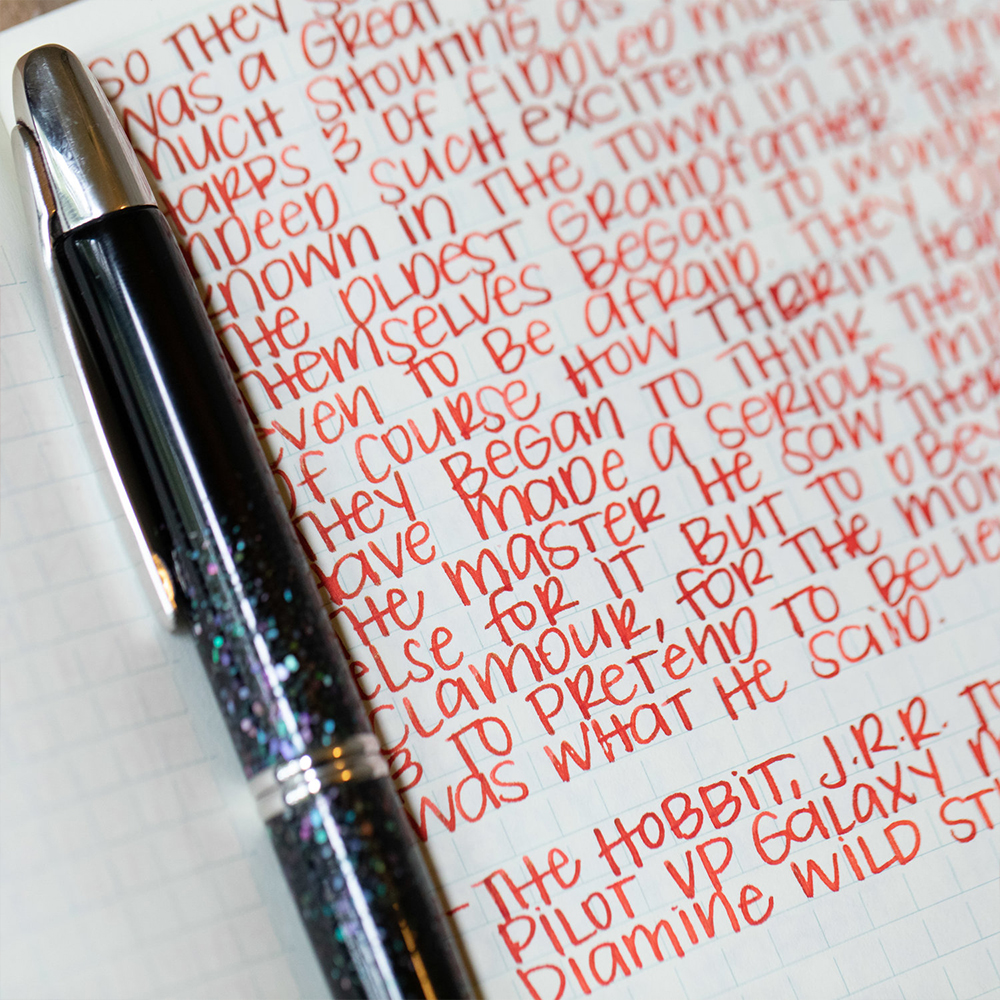 So they
was a great
much shouting as
harps & of fiddled
indeed such excitement had
known in the town in the
the oldest grandfather. The
themselves began to wonder
even to be afraid. They
of course how Thorin had
they began to think their
have made a serious
the master he saw there
else for it but to obey
clamour, for the
& to pretend to believe
was what he said.
- The Hobbit, J.R.R.
Pilot VP Galaxy
Diamine Wild